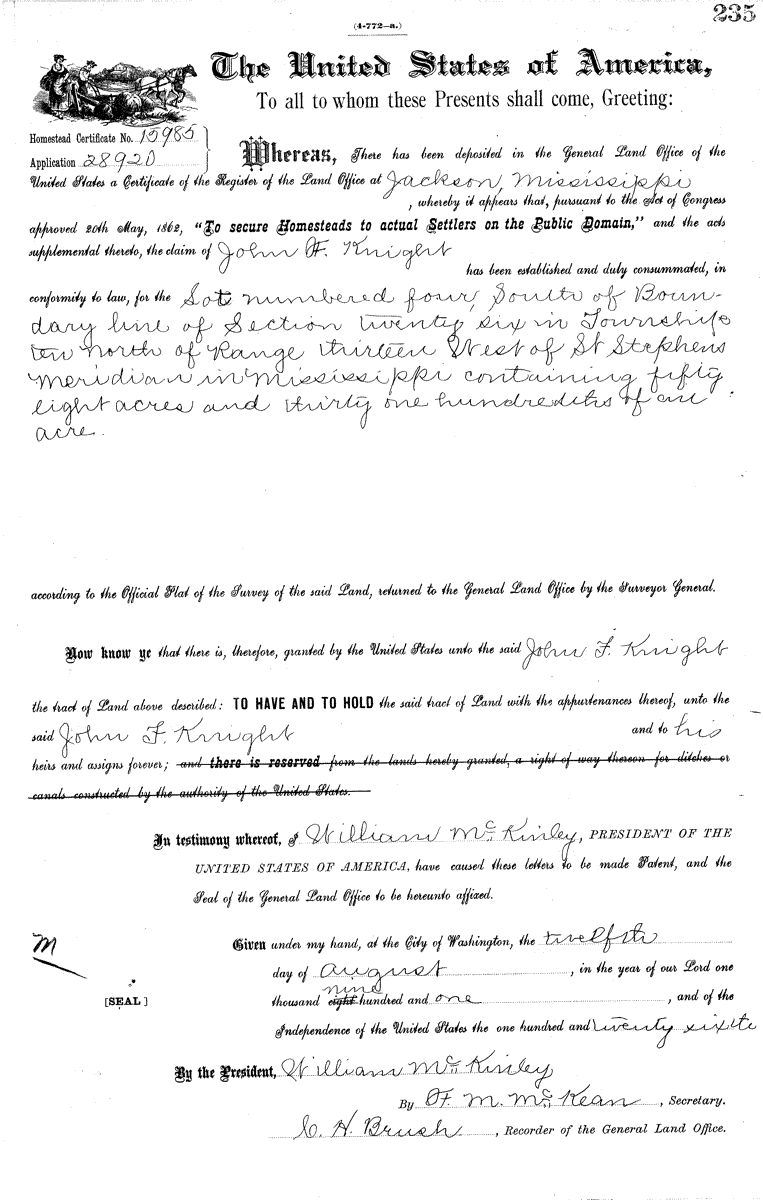 235
(4-772-a.)
The United States of America,
To all to whom these Presents shall come, Greeting:
Homestead Certificate No. 15985
Application 28920
Whereas, There has been deposited in the General Land Office of the
United States a Certificate of the Register of the Land Office at Jackson, Mississippi
, whereby it appears that, pursuant to the Act of Congress
approved 20th May, 1862, "To secure Homesteads to actual Settlers on the Public Domain," and the acts
supplemental thereto, the claim of John F. Knight
has been established and duly consummated, in
conformity to law, for the Lot numbered four, South of Boun-
dary line of Section twenty six in Township
ten North of Range thirteen West of St Stephens
Meridian in Mississippi containing fifty
eight acres and thirty one hundredths of an
acre.
according to the Official Plat of the Survey of the said Land, returned to the General Land Office by the Surveyor General.
Now know ye that there is, therefore, granted by the United States unto the said John F. Knight
the tract of Land above described: TO HAVE AND TO HOLD the said tract of Land with the appurtenances thereof, unto the
said John F. Knight and to his
heirs and assigns forever; and there is reserved from the lands hereby granted, a right of way thereon for ditches or
canals constructed by the authority of the United States.
In testimony whereof, I William McKinley, PRESIDENT OF THE
UNITED STATES OF AMERICA, have caused these letters to be made Patent, and the
Seal of the General Land Office to be hereunto affixed.
M
Given under my hand, at the City of Washington, the twelfth
day of August, in the year of our Lord one
nine
[SEAL] thousand eight hundred and one, and of the
Independence of the United States the one hundred and twenty sixth
By the President, William McKinley
By F. M. McKean, Secretary.
C. H. Brush, Recorder of the General Land Office.